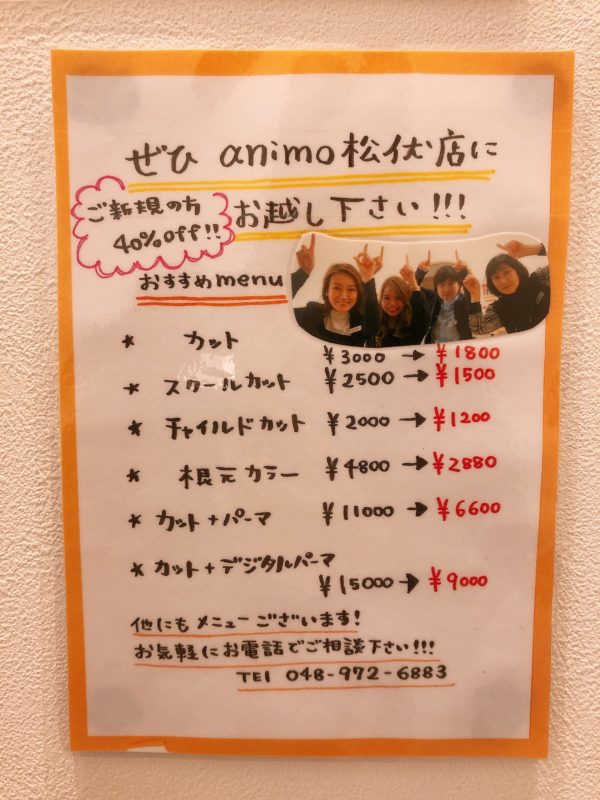 ぜひ animo松伏店に
お越し下さい!!!
ご新規の方
40%off!!
おすすめmenu
* カット ¥3000→¥1800
* スクールカット ¥2500→¥1500
* チャイルドカット ¥2000→¥1200
* 根元カラー ¥4800→¥2880
* カット+パーマ ¥11000→¥6600
* カット+デジタルパーマ
¥15000→¥9000
他にもメニューございます!
お気軽にお電話でご相談下さい!!!
TEl 048-972-6883